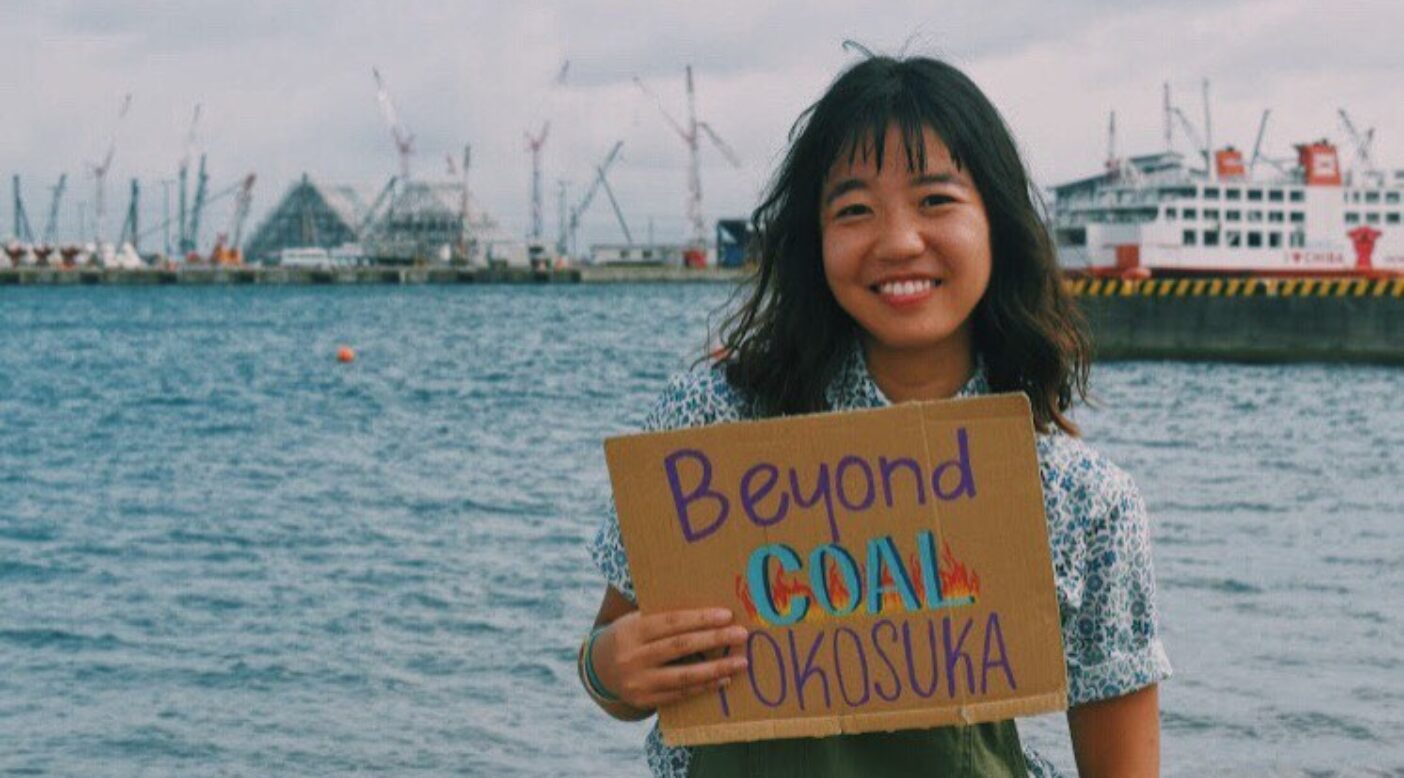 Beyond
COAL
YOKOSUKA
I♥CHIBA